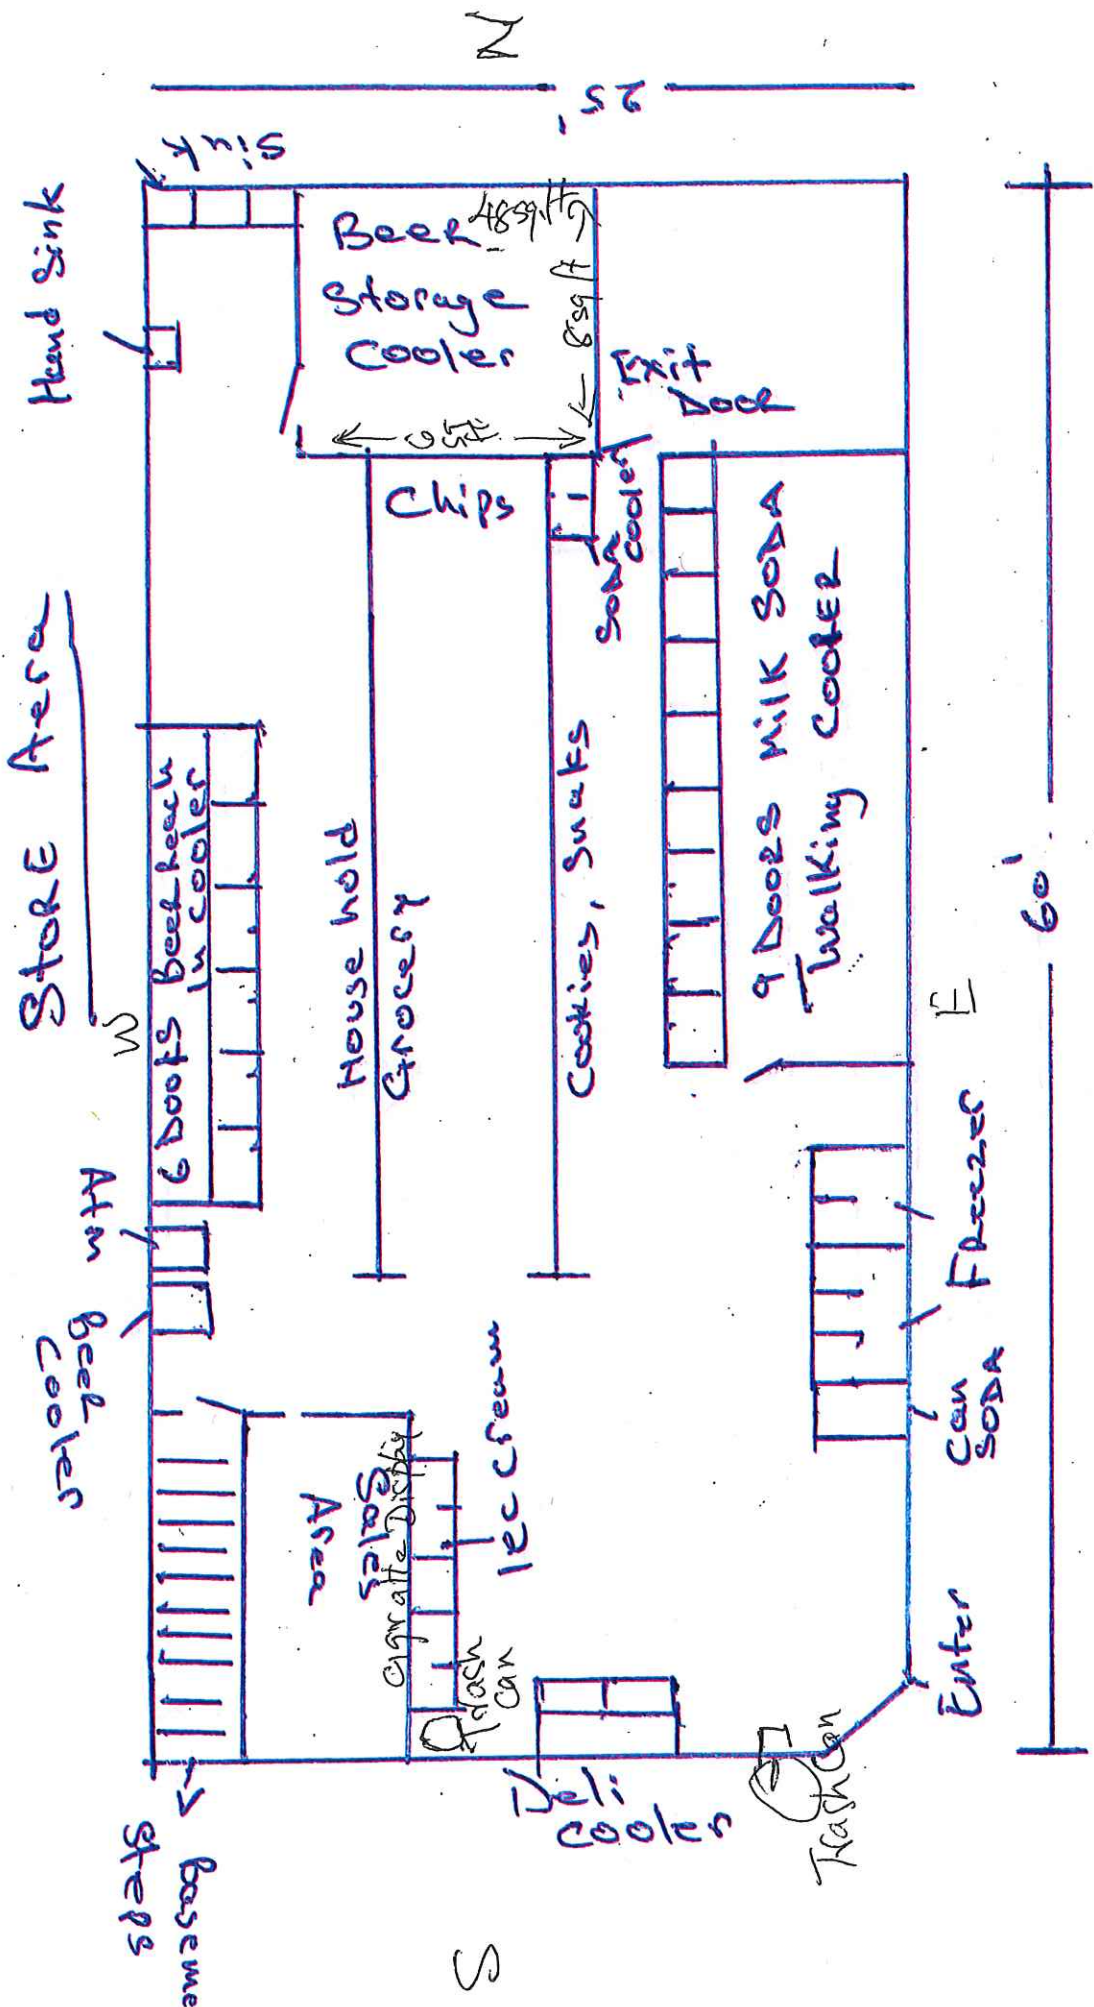 STORE Aera
W
N
S
E
25'
60'
Sink
Hand Sink
Beer
Storage
Cooler
48sq.ft
8sq ft
6sqft
Exit
Door
Chips
SODA
Cooler
6 Doors Beer Reach
in Cooler
House hold
Grocery
Cookies, Snaks
9 Doors Milk SODA
Walking Cooler
Atm
Beer
Cooler
Freezer
Can
SODA
Sales
Area
Cigratte Display
Iec Cream
Trash
Can
Deli
Cooler
Trash Can
Enter
Baseme
Steps